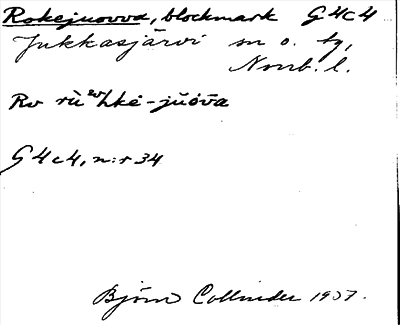 Rokejuovva, blockmark G4c4
Jukkasjärvi sn o. tg,
Norrb. l.
Rv rù hkė-jŭòva
G4c4, n:r 34
Björn Collinder 1937.